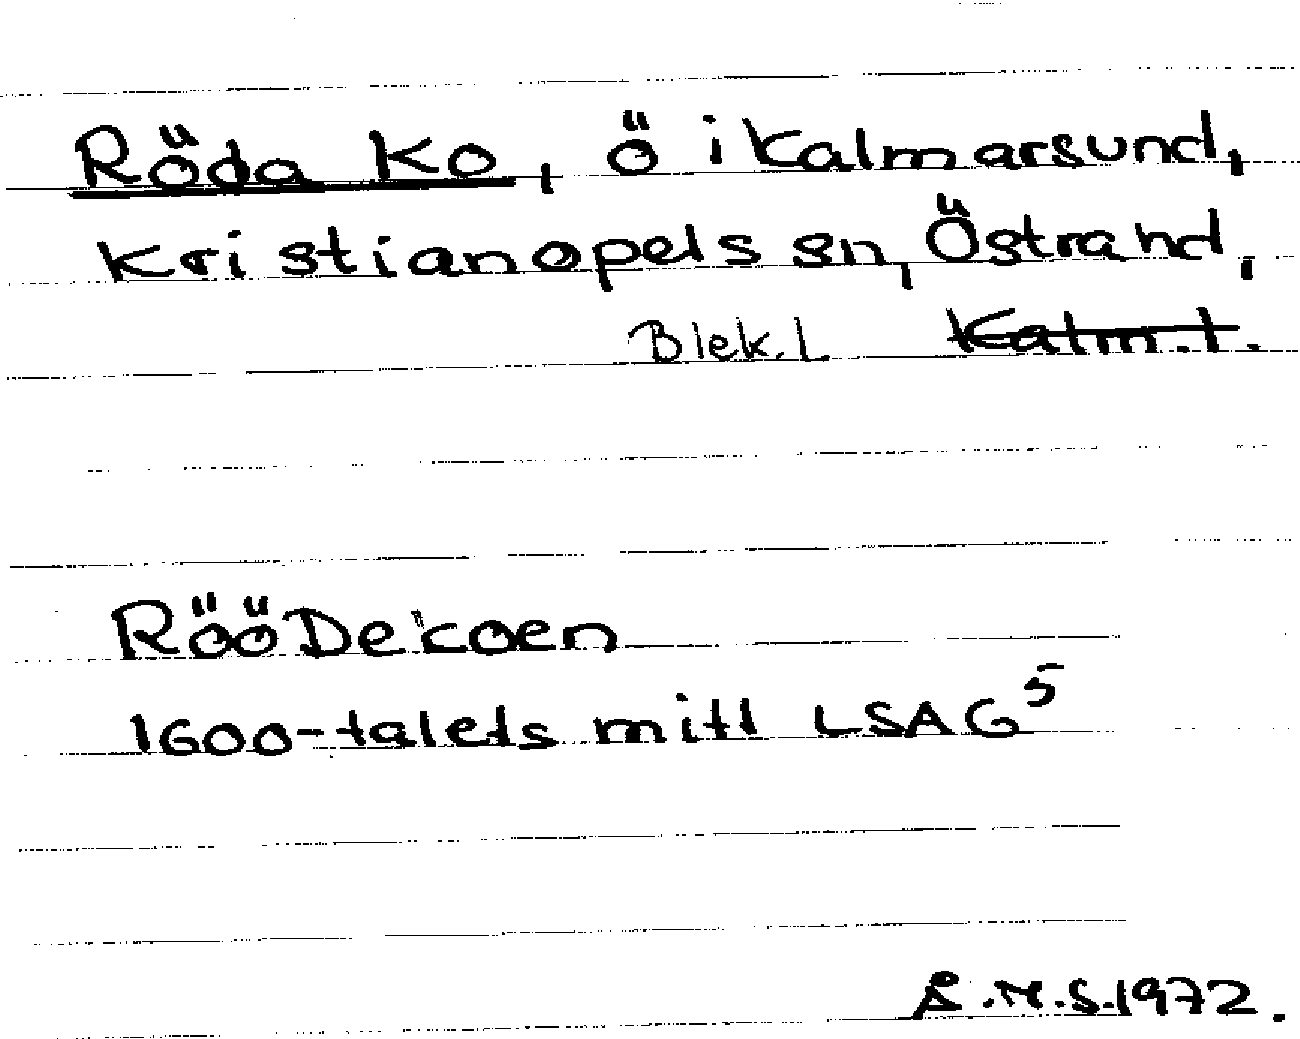 Röda Ko, ö i Kalmarsund,
Kristianopels sn, Östrand,
Blek. l. Kalm. l.
RööDekoen
1600-talets mitt LSA G5
Å.M.S. 1972.